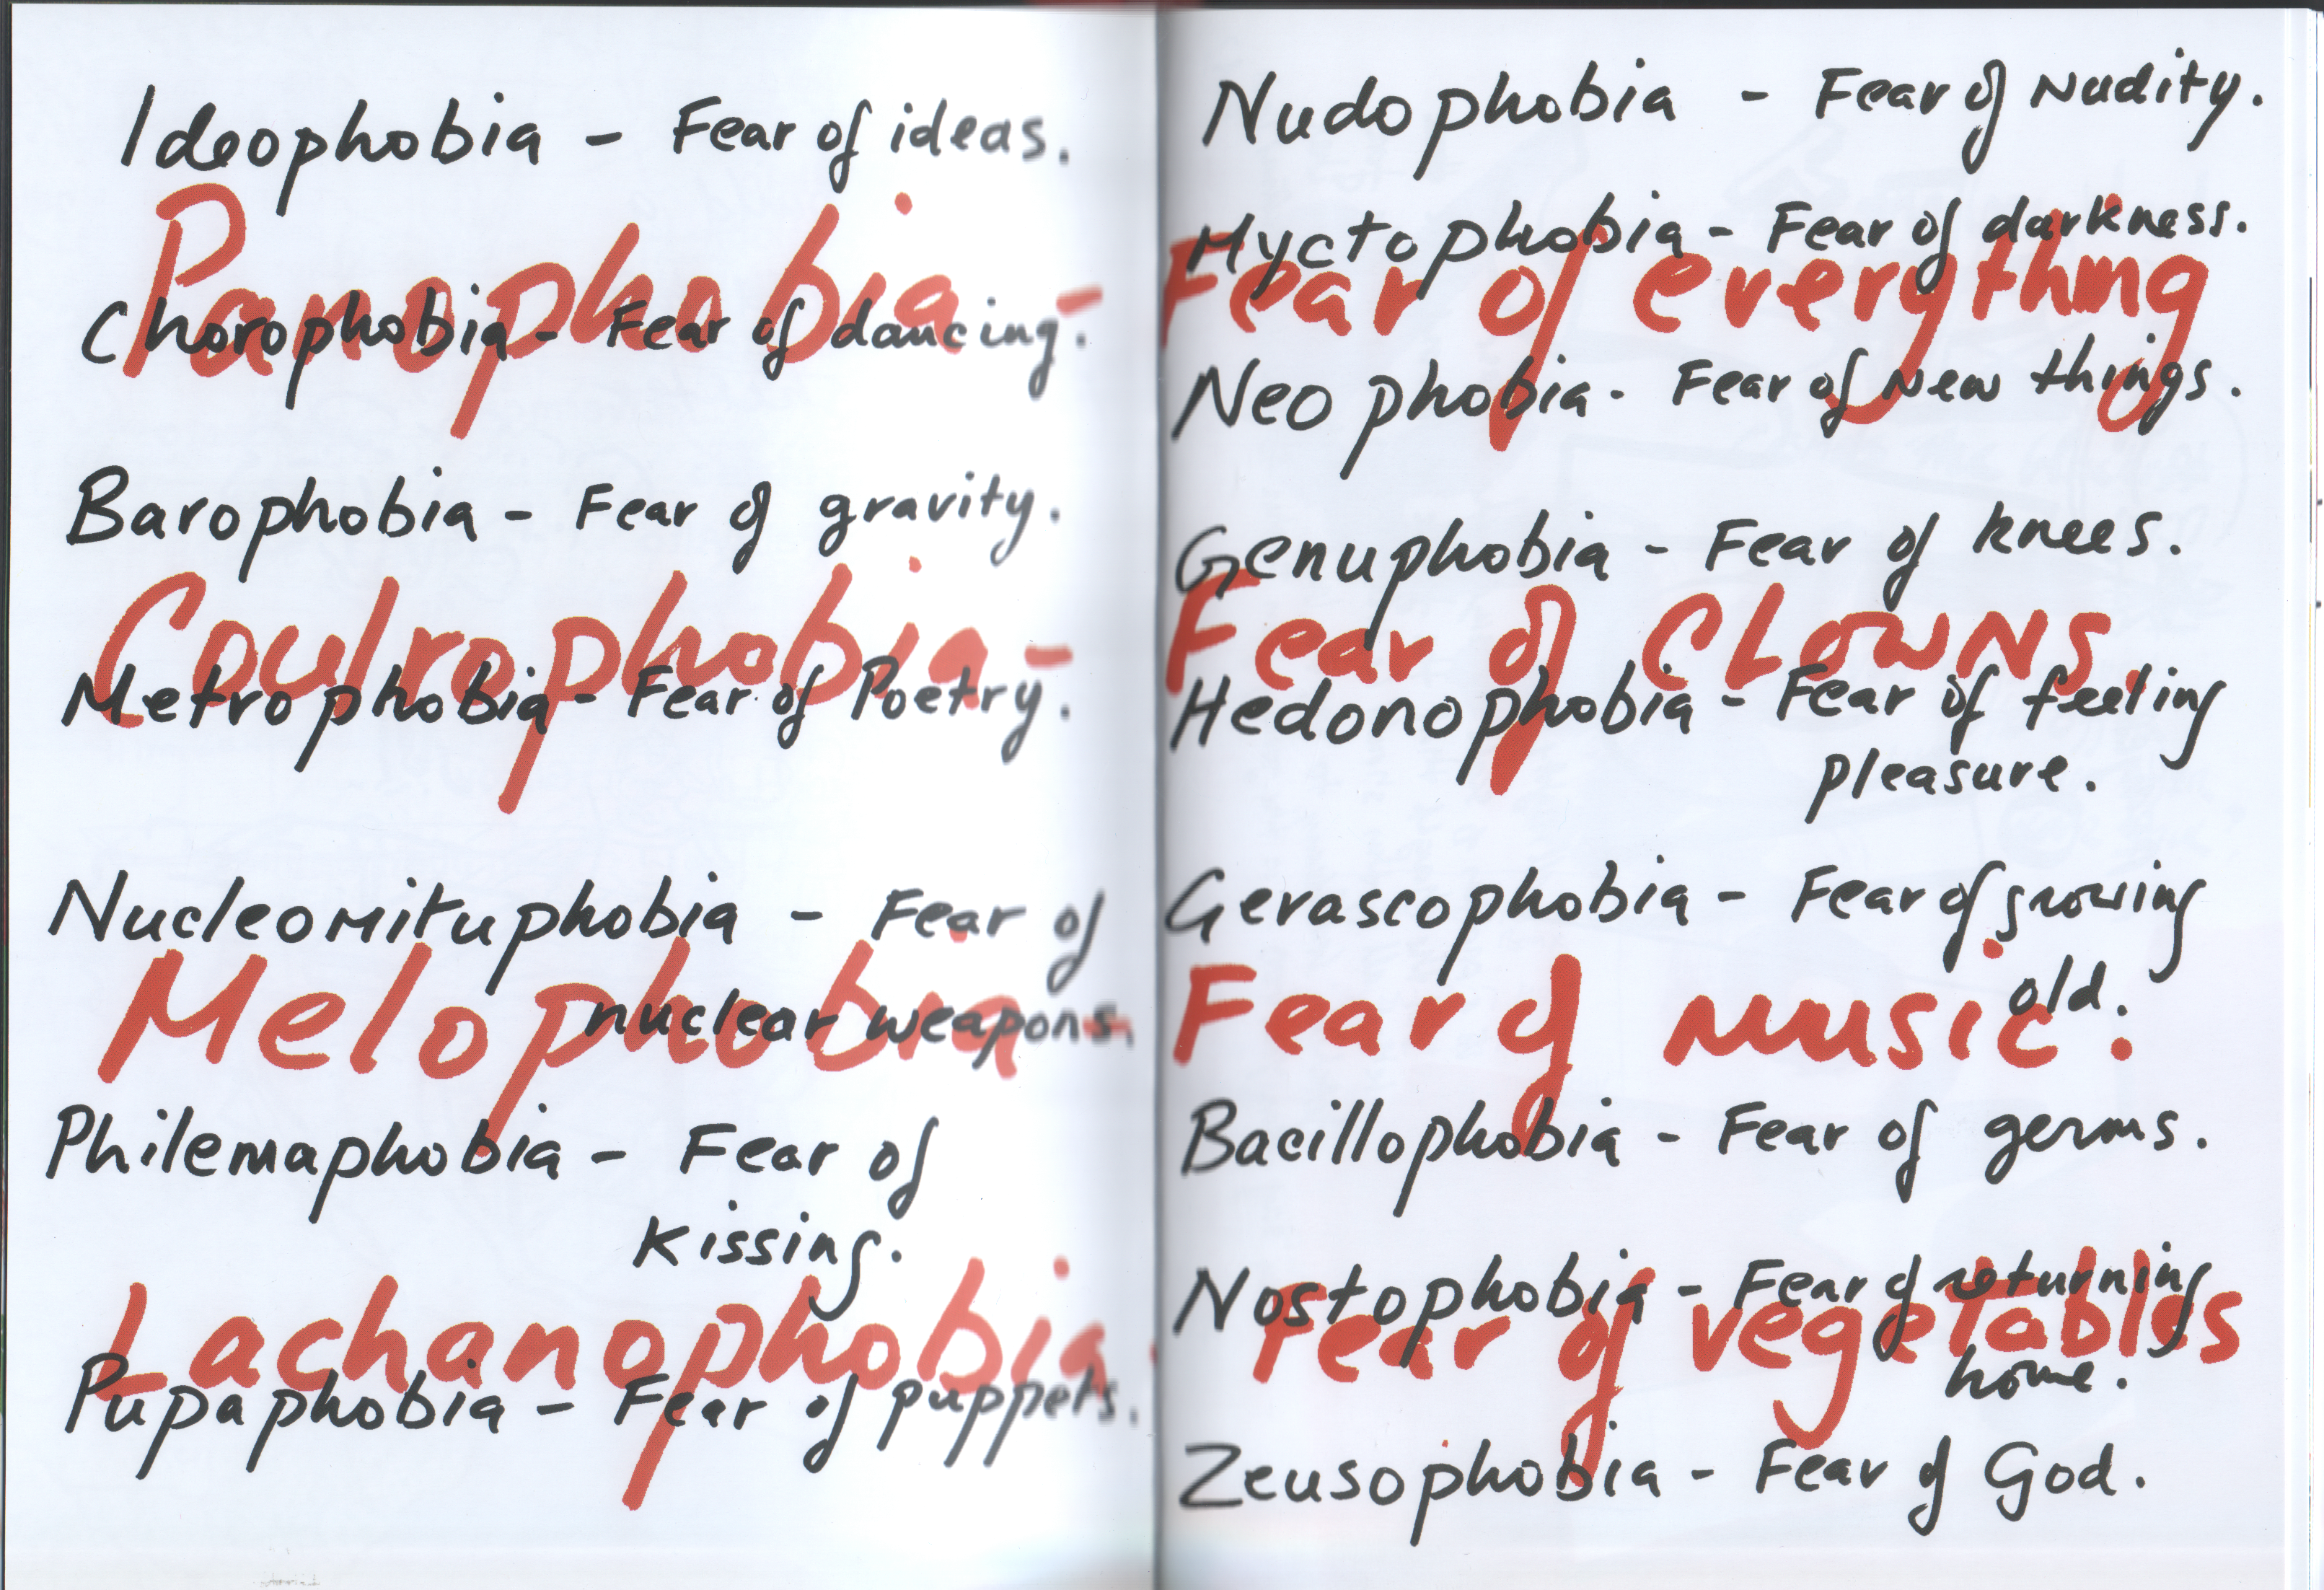 Ideophobia - Fear of ideas.
Panophobia -
Chorophobia - Fear of dancing.
Barophobia - Fear of gravity.
Coulrophobia -
Metrophobia - Fear of Poetry.
Nucleomituphobia - Fear of
Melophobia -
nuclear weapons.
Philemaphobia - Fear of
Kissing.
Lachanophobia -
Pupaphobia - Fear of puppets.
Nudophobia - Fear of Nudity.
Myctophobia - Fear of darkness.
Fear of everything
Neophobia - Fear of New things.
Genuphobia - Fear of knees.
Fear of CLOWNS.
Hedonophobia - Fear of feeling
pleasure.
Gerascophobia - Fear of growing
old.
Fear of music.
Bacillophobia - Fear of germs.
Nostophobia - Fear of returning
Fear of vegetables
home.
Zeusophobia - Fear of God.